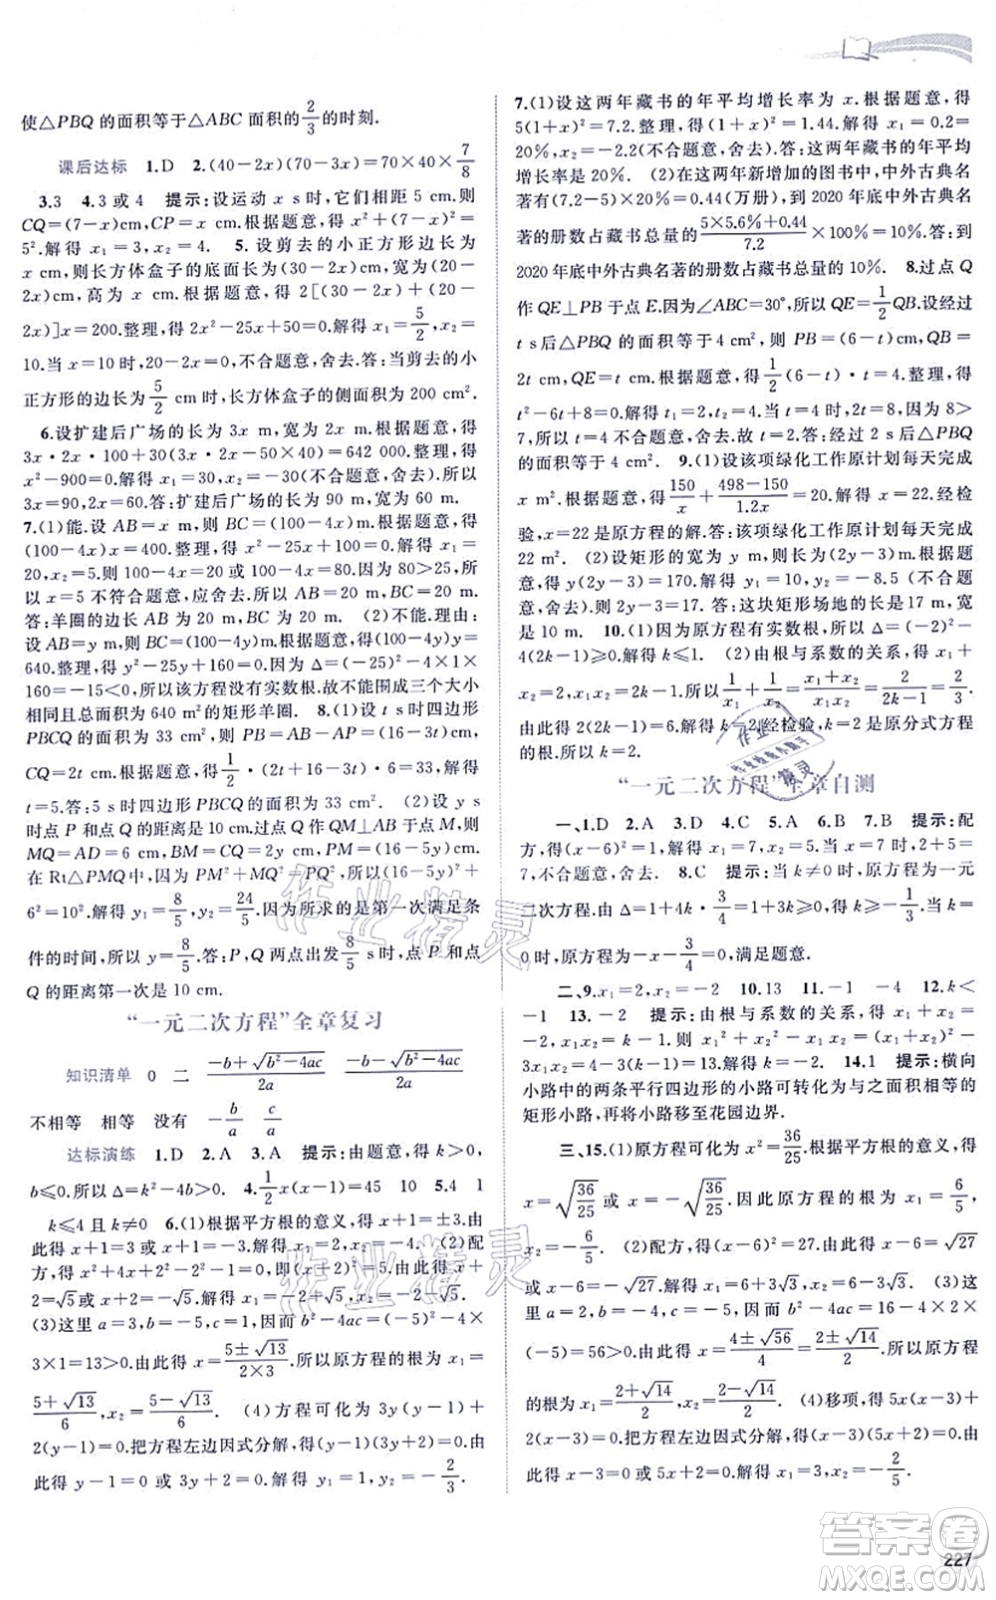 使△PBQ 的面积等于△ABC 面积的 2/3 的时刻.
课后达标 1.D 2.(40－2x)(70－3x)＝70×40×7/8
3.3 4.3 或 4 提示:设运动 x s时,它们相距 5 cm.则
CQ＝(7－x)cm,CP＝x cm.根据题意,得 x²＋(7－x)²＝
5².解得 x₁＝3,x₂＝4. 5.设剪去的小正方形边长为
x cm,则长方体盒子的底面长为(30－2x)cm,宽为(20－
2x)cm,高为 x cm.根据题意,得 2[(30－2x)＋(20－
2x)]x＝200.整理,得 2x²－25x＋50＝0.解得 x₁＝5/2,x₂＝
10.当 x＝10 时,20－2x＝0,不合题意,舍去.答:当剪去的小
正方形的边长为 5/2 cm 时,长方体盒子的侧面积为 200 cm².
6.设扩建后广场的长为 3x m,宽为 2x m.根据题意,得
3x·2x·100＋30(3x·2x－50×40)＝642 000.整理,得
x²－900＝0.解得 x₁＝30,x₂＝－30(不合题意,舍去).所以
3x＝90,2x＝60.答:扩建后广场的长为 90 m,宽为 60 m.
7.(1)能.设 AB＝x m,则 BC＝(100－4x)m.根据题意,得
(100－4x)x＝400.整理,得 x²－25x＋100＝0.解得 x₁＝
20,x₂＝5.则 100－4x＝20 或 100－4x＝80.因为 80＞25,所
以 x＝5 不符合题意,应舍去.所以 AB＝20,BC＝20.
答:羊圈的边长 AB,BC 分别为 20 m,20 m. (2)不能.理由:
设 AB＝y m,则 BC＝(100－4y)m.根据题意,得(100－4y)y＝
640.整理,得 y²－25y＋160＝0.因为 Δ＝(－25)²－4×1×
160＝－15＜0,所以该方程没有实数根.故不能围成三个大小
相同且总面积为 640 m² 的矩形羊圈. 8.(1)设 t s时四边形
PBCQ 的面积为 33 cm²,则 PB＝AB－AP＝(16－3t)cm,
CQ＝2t cm.根据题意,得 1/2·(16－3t＋2t)·6＝33.解得
t＝5.答:5 s时四边形 PBCQ 的面积为 33 cm². (2)设 y s
时点 P 和点 Q 的距离为 10 cm.过点 Q 作 QM⊥AB 于点 M,则
MQ＝AD＝6 cm,BM＝CQ＝2y cm,PM＝(16－5y)cm.
在 Rt△PMQ 中,因为 PM²＋MQ²＝PQ²,所以(16－5y)²＋
6²＝10².解得 y₁＝8/5,y₂＝24/5.因为所求的是第一次满足条
件的时间,所以 y＝8/5.答:P,Q 两点出发 8/5 s时,点 P 和点
Q 的距离第一次是 10 cm.
“一元二次方程”全章复习
知识清单 0 二 (－b＋√(b²－4ac))/2a (－b－√(b²－4ac))/2a
不相等 相等 没有 －b/a c/a
达标演练 1.D 2.A 3.A 提示:由题意,得 k＞0,
b≤0.所以 Δ＝k²－4b＞0. 4.1/2x(x－1)＝45 10 5.4 1
k≤4 且 k≠0 6.(1)根据平方根的意义,得 x＋1＝±3.由
此得 x＋1＝3 或 x＋1＝－3.解得 x₁＝2,x₂＝－4. (2)配方,
得(x＋2)²＝5.由此得 x＋
2＝√5 或 x＋2＝－√5.解得 x₁＝－2＋√5,x₂＝－2－√5.
(3)这里 a＝3,b＝－5,c＝1,因而 b²－4ac＝(－5)²－4×
3×1＝13＞0.由此得 x＝(5±√13)/(2×3).所以原方程的根为 x₁＝
(5＋√13)/6,x₂＝(5－√13)/6. (4)方程可化为 3y(y－1)＋
2(y－1)＝0.把方程左边因式分解,得(y－1)(3y＋2)＝0.由
此得 y－1＝0 或 3y＋2＝0.解得 y₁＝1,y₂＝－2/3.
7.(1)设这两年藏书的年平均增长率为 x.根据题意,得
5(1＋x)²＝7.2.整理,得(1＋x)²＝1.44.解得 x₁＝0.2＝
20%,x₂＝－2.2(不合题意,舍去).答:这两年藏书的年平均增
长率是 20%. (2)这两年新增加的图书中,中外古典名著
有(7.2－5)×20%＝0.44(万册),到 2020 年底中外古典名
著的册数占藏书总量的 (5×5.6%＋0.44)/7.2 ×100%＝10%.答:到
2020 年底中外古典名著的册数占藏书总量的 10%. 8.过点 Q
作 QE⊥PB 于点 E.因为∠ABC＝30°,所以 QE＝1/2QB.设经过
t s后△PBQ 的面积等于 4 cm²,则 PB＝(6－t)cm,QB＝
2t cm,QE＝t cm.根据题意,得 1/2(6－t)·t＝4.整理,得
t²－6t＋8＝0.解得 t₁＝2,t₂＝4.当 t＝4 时,2t＝8,因为 8＞
7,所以 t＝4 不合题意,舍去.故取 t＝2.答:经过 2 s后△PBQ
的面积等于 4 cm². 9.(1)设该项绿化工作原计划每天完成
x m².根据题意,得 150/x＋(498－150)/1.2x＝20.解得 x＝22.经检
验,x＝22 是原方程的解.答:该项绿化工作原计划每天完成
22 m². (2)设矩形的宽为 y m,则长为(2y－3)m.根据题
意,得 y(2y－3)＝170.解得 y₁＝10,y₂＝－8.5(不合题
意,舍去).所以 2y－3＝17.答:这块矩形场地的长是 17 m,宽
是 10 m. 10.(1)因为原方程有实数根,所以 Δ＝(－2)²－
4(2k－1)≥0.解得 k≤1. (2)由根与系数的关系,得 x₁＋
x₂＝2,x₁x₂＝2k－1.所以 1/x₁＋1/x₂＝(x₁＋x₂)/x₁x₂＝2/(2k－1)＝2/3.
由此得 2(2k－1)＝6.解得 k＝2.经检验,k＝2 是原分式方程
的根.所以 k＝2.
“一元二次方程”全章自测
一、1.D 2.A 3.D 4.C 5.A 6.B 7.B 提示:配
方,得(x－6)²＝1.解得 x₁＝5,x₂＝7.当三边长为 2,5,7 时,2＋5＝
7,不合题意,舍去. 8.C 提示:当 a≠0 时,原方程为一元
二次方程.由 Δ＝1＋4a·3/4＝1＋3a≥0,得 a≥－1/3.当 a＝
0 时,原方程的根为 x＝－3/4,满足题意.
二、9.x₁＝2,x₂＝－2 10.13 11.－1 －4 12.k＜
－1 13.－2 提示:由根与系数的关系,得 x₁＋x₂＝
－2,x₁x₂＝k－1.因而 x₁²＋x₂²－x₁x₂＝(x₁＋x₂)²－
3x₁x₂＝4－3(k－1)＝13.解得 k＝－2. 14.1 提示:横向
小路中的两条平行四边形的小路可转化为与之面积相等的
矩形小路,再将小路移至花园边界.
三、15.(1)原方程可化为 x²＝36/25.根据平方根的意义,得
x＝√(36/25) 或 x＝－√(36/25).因此原方程的根为 x₁＝6/5,
x₂＝－6/5. (2)配方,得(x－6)²＝27.由此得 x－6＝√27
或 x－6＝－√27.解得 x₁＝6＋3√3,x₂＝6－3√3. (3)这
里 a＝2,b＝－4,c＝－5,因而 b²－4ac＝16－4×2×
(－5)＝56＞0.由此得 x＝(4±√56)/4＝(2±√14)/2.所以原方程
的根为 x₁＝(2＋√14)/2,x₂＝(2－√14)/2. (4)移项,得 5x(x－3)＋
2(x－3)＝0.把方程左边因式分解,得(x－3)(5x＋2)＝0.
由此得 x－3＝0 或 5x＋2＝0.解得 x₁＝3,x₂＝－2/5.
作业精灵
作业精灵
答案圈
MXQE.COM
227